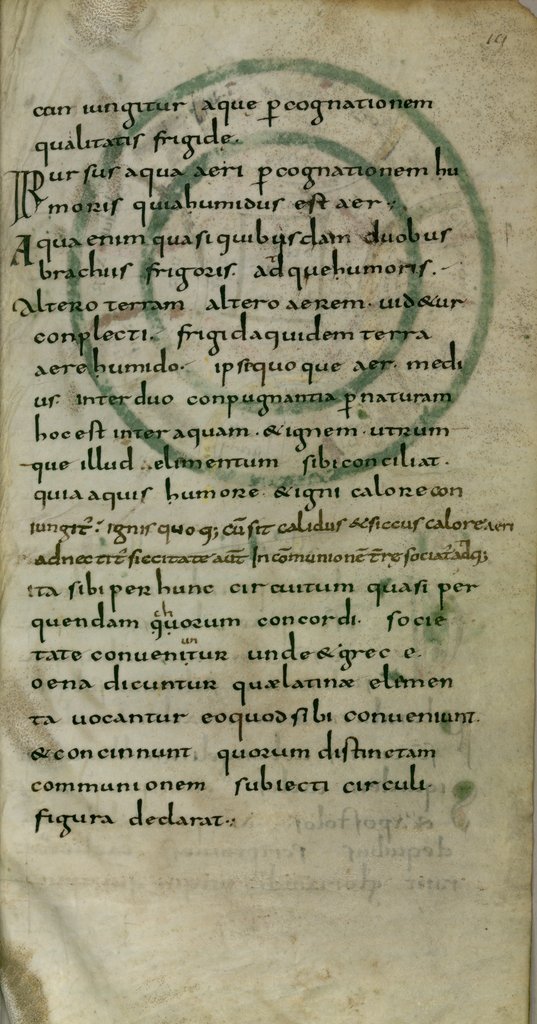 101
con iungitur aque p̄cognationem
qualitatis frigide.
Rursus aqua aeri p̄cognationem hu
moris quiahumidus est aer:,
Aqua enim quasi quibusdam duobus
brachiis frigoris. adquehumoris.
Altero terram altero aerem. uid&ur
conplecti. frigidaquidem terra
aerehumido. ipsequoque aer. medi
us. inter duo conpugnantia p̄naturam
hoc est inter aquam. & ignem. utrum
que illud elimentum sibiconciliat.
quia aquis humore. & igni calorecon
iungit̄. ignis quoq; cū sit calidus & siccus calore aeri
adnectit̄ siccitate aut̄ In cōmunionē t̄re sociat̄ adq;
ita sibi per hunc circuitum quasi per
quendam ch quorum concordi. socie
un
tate conuenitur unde & grec e.
oena dicuntur quælatinæ elimen
ta uocantur eoquodsibi conueniunt.
& concinnunt quorum distinctam
communionem subiecti circuli.
figura declarat:,